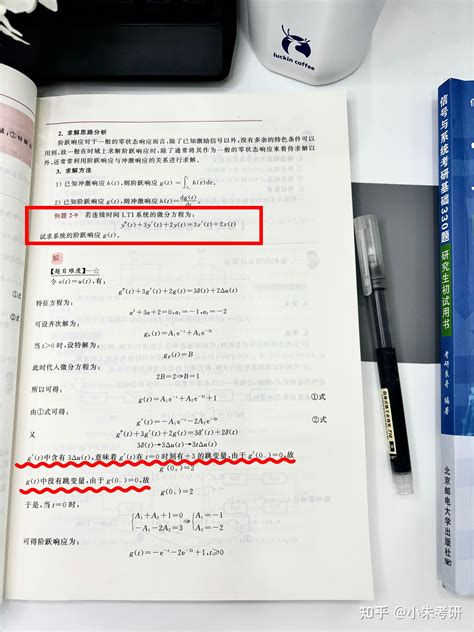 luckin coffee
2. 求解思路分析
阶跃响应对于一般的零状态响应而言,除了已知激励信号以外,没有多余的特色条件可以
用到,故一般在时域上求解阶跃响应时,除了通常将其作为一般的零状态响应来看待求解以
外,还常常利用阶跃响应与冲激响应的关系进行求解。
3. 求解方法
1) 已知冲激响应 h(t),则阶跃响应 g(t)=∫h(τ)dτ。
2) 已知阶跃响应 g(t),则冲激响应 h(t)=dg(t)/dt。
例题 2-9 若连续时间 LTI 系统的微分方程为:
y″(t)+3y′(t)+2y(t)=3x′(t)+2x(t)
试求系统的阶跃响应 g(t)。
解
【题目难度】—☆
令 x(t)=u(t),有:
g″(t)+3g′(t)+2g(t)=3δ(t)+2Δu(t)
特征方程为:
a²+3a+2=0,a₁=-1,a₂=-2
可设齐次解为:
gₕ(t)=A₁e⁻ᵗ+A₂e⁻²ᵗ
当 t>0 时,设特解为:
gₚ(t)=B
此时代入微分方程为:
2B=2⇒B=1
所以可得:
g(t)=A₁e⁻ᵗ+A₂e⁻²ᵗ+1 ①式
由①式可得:
g′(t)=-A₁e⁻ᵗ-2A₂e⁻²ᵗ ②式
又
g″(t)+3g′(t)+2g(t)=3δ(t)+2δ(t)
3δ(t)→3Δu(t)→3tΔu(t)
g′(t)中含有 3Δu(t),意味着 g′(t)在 t=0 时刻有+3 的跳变量,由于 g′(0₋)=0,故
g(t)中没有跳变量,由于 g(0₋)=0,故
g(0₊)=2
于是,当 t=0 时,
A₁+A₂+1=0
-A₁-2A₂=3
⇒
A₁=-1
A₂=-2
可得阶跃响应为:
g(t)=-e⁻ᵗ-2e⁻²ᵗ+1,t≥0
信号与系统考研基础330题
研究生初试用书
编著
北京邮电大学出版社
知乎 @小朱考研